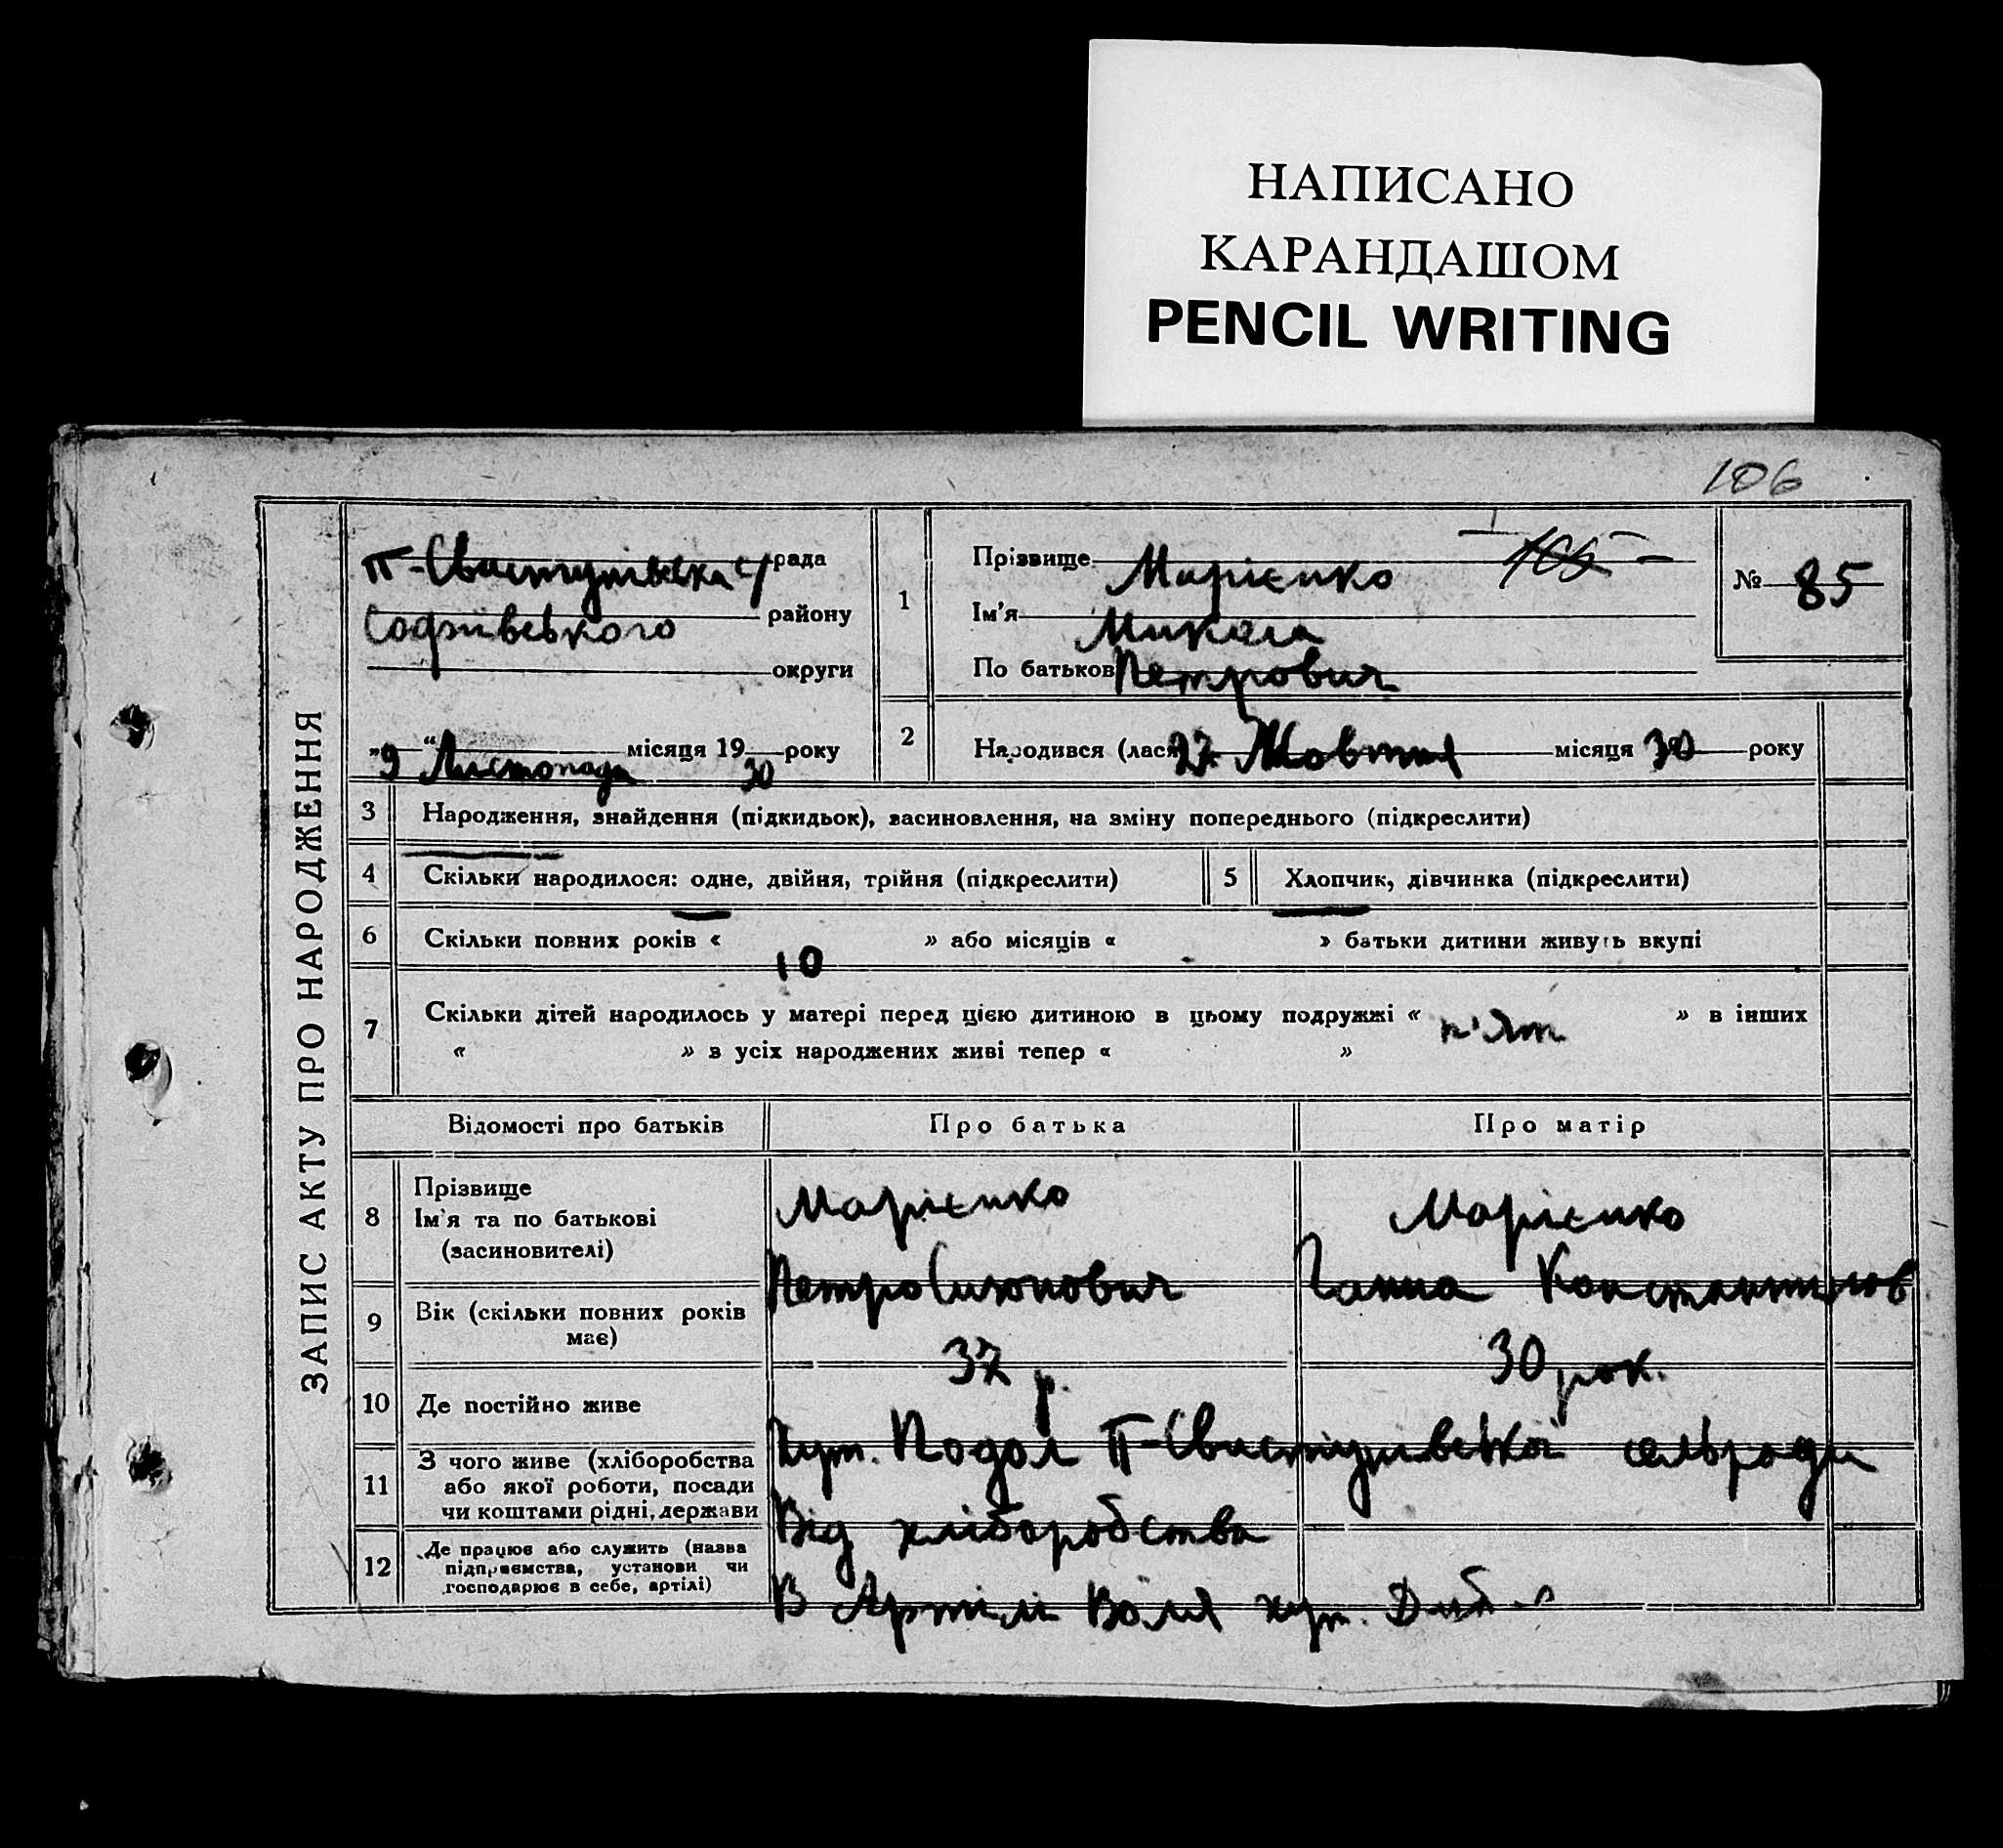 НАПИСАНО
КАРАНДАШОМ
PENCIL WRITING
106
ЗАПИС АКТУ ПРО НАРОДЖЕННЯ
П-Свистунівська с/рада
Софіївського району
округи
"9" Листопада місяця 1930 року
1
Прізвище Марієнко
105
Ім'я Микола
По батьков Петрович
№ 85
2
Народився (лася 27 Жовтня місяця 30 року
3 Народження, знайдення (підкидьок), засиновлення, на зміну попереднього (підкреслити)
4 Скільки народилося: одне, двійня, трійня (підкреслити)
5 Хлопчик, дівчинка (підкреслити)
6 Скільки повних років « 10 » або місяців « » батьки дитини живуть вкупі
7 Скільки дітей народилось у матері перед цією дитиною в цьому подружжі « п'ят » в інших
« » з усіх народжених живі тепер « »
Відомості про батьків Про батька Про матір
8 Прізвище
Ім'я та по батькові
(засиновителі)
Марієнко
Петро
Марієнко
Ганна Константинов
9 Вік (скільки повних років
має)
37 р.
30 рок.
10 Де постійно живе
Хут. Подол П-Свистунівської сельради
11 З чого живе (хліборобства
або якої роботи, посади
чи коштами рідні, держави
Від хліборобства
12 Де працює або служить (назва
підприємства, установи чи
господарює в себе, артілі)
В Артілі Воля хут.